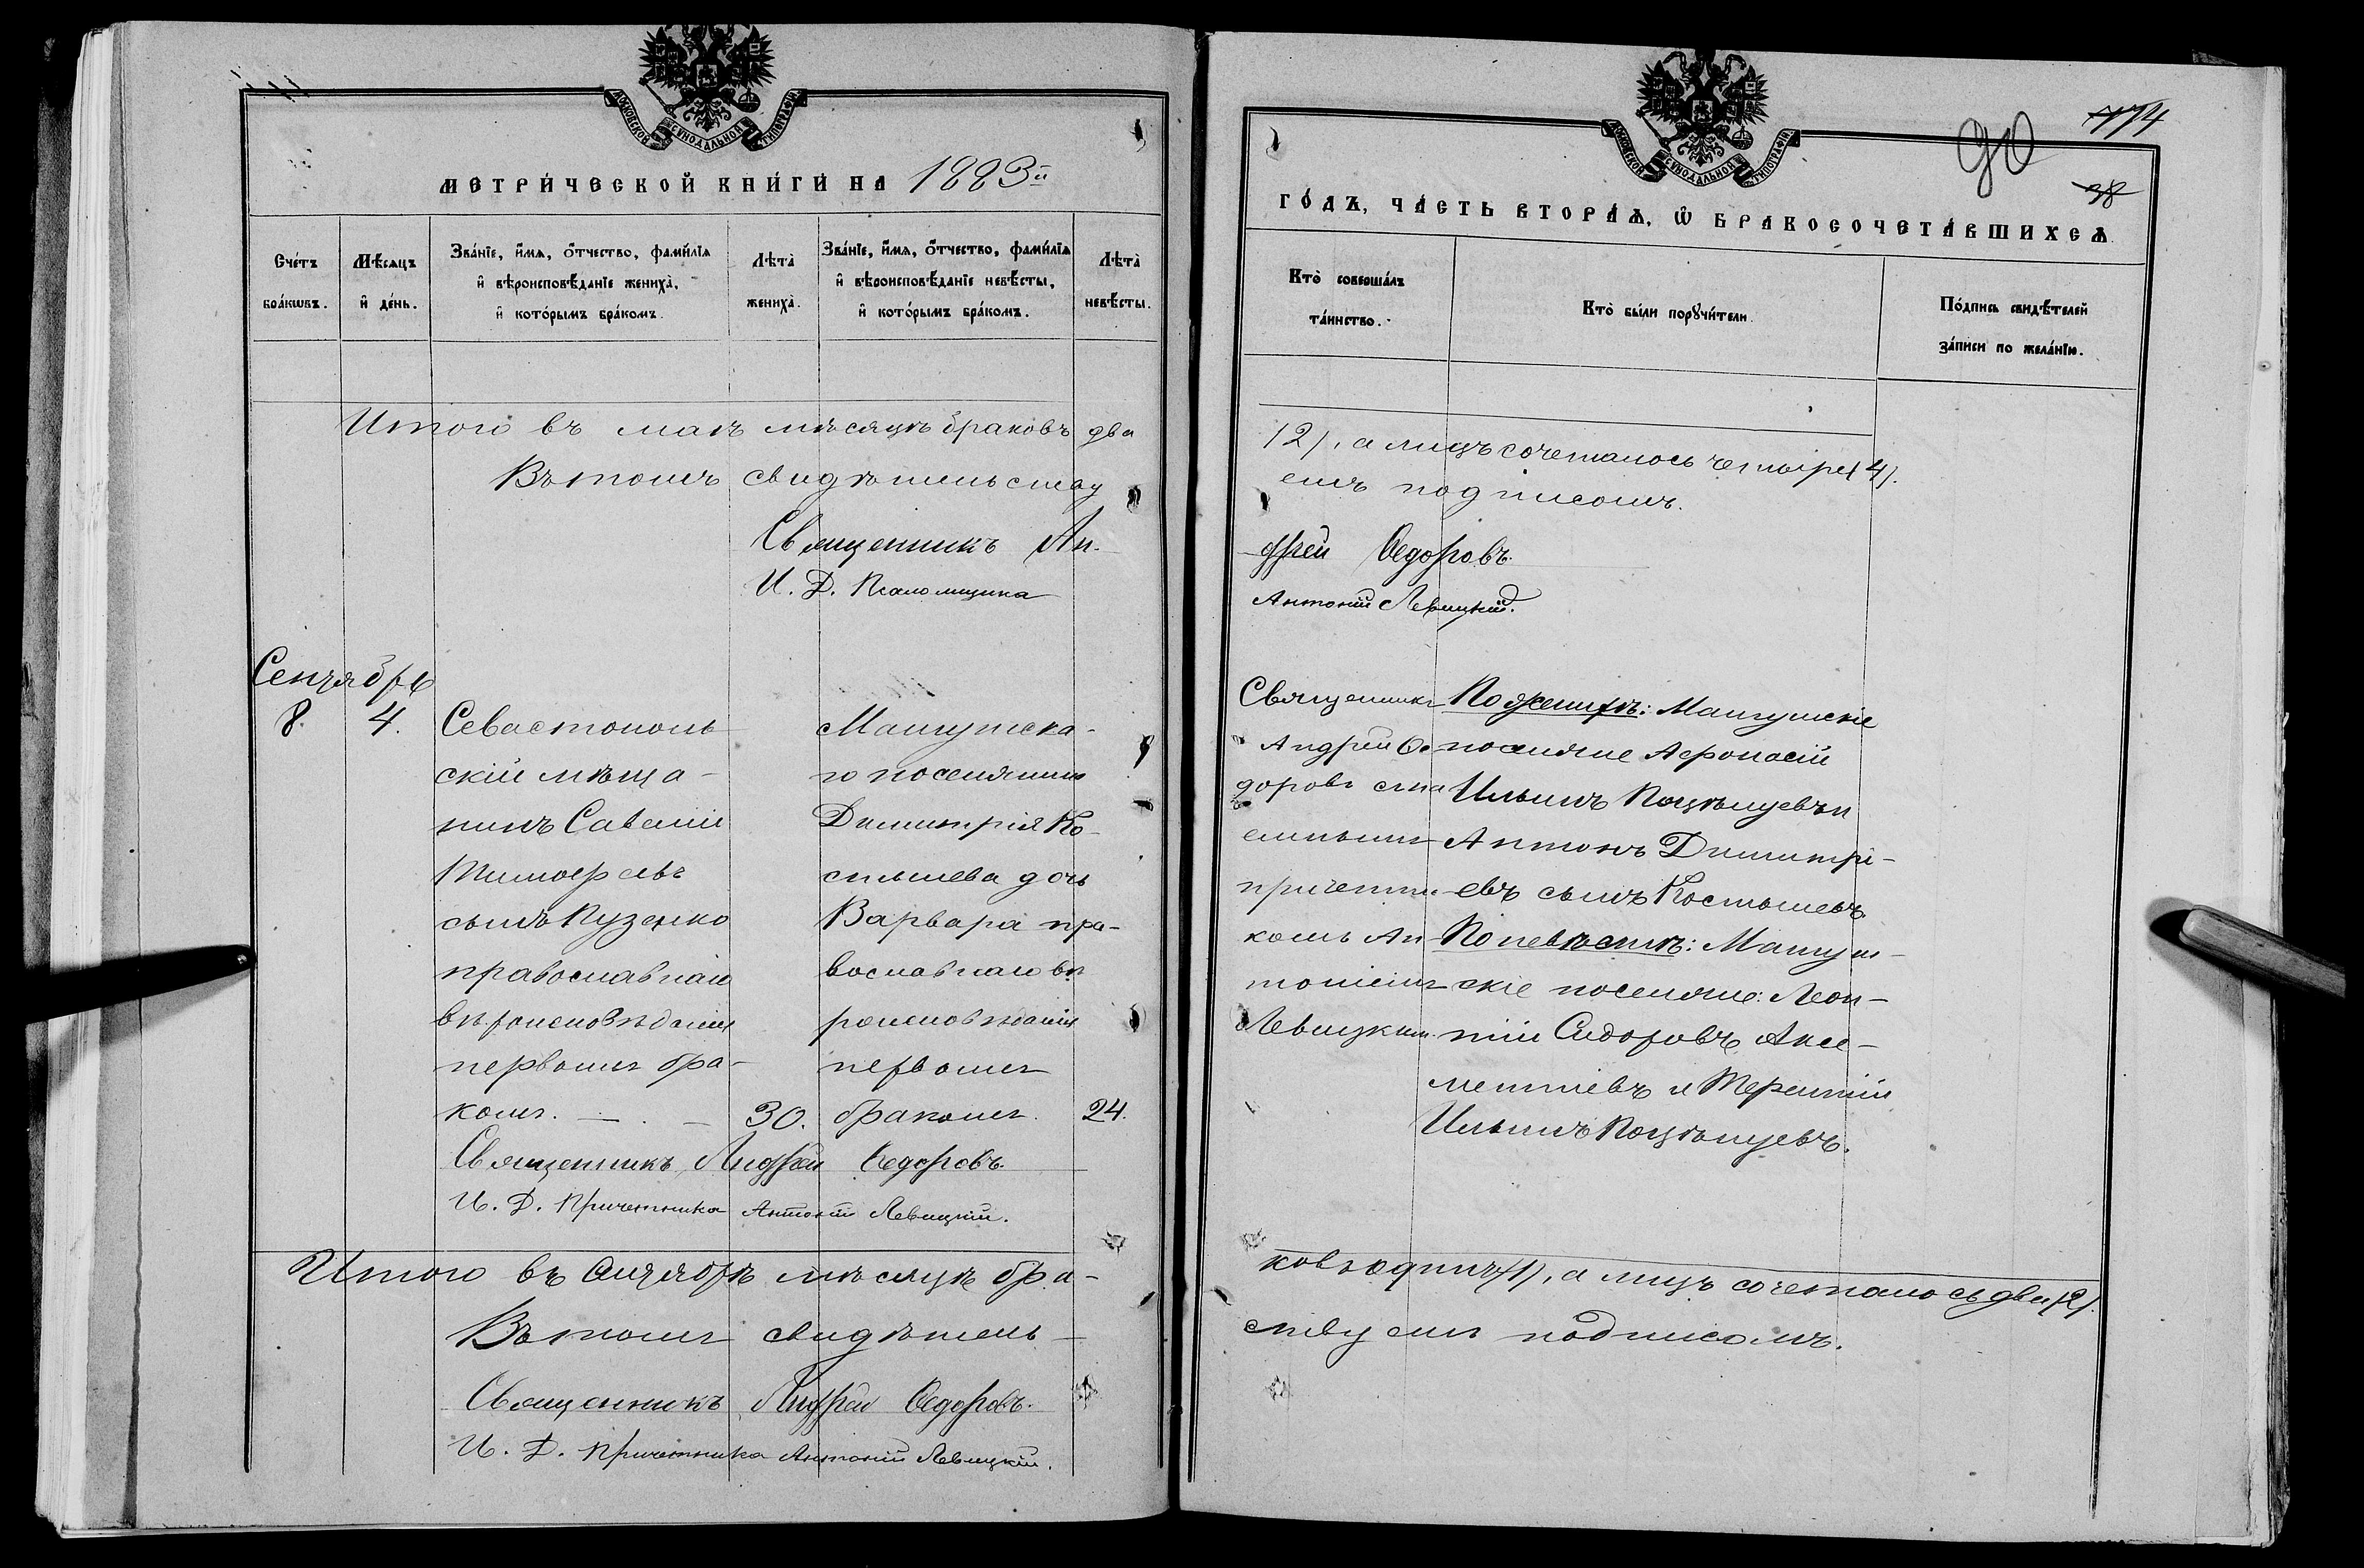 МОСКОВСКОЙ СѴНОДАЛЬНОЙ ТИПОГРАФІИ
МЕТРИ́ЧЕСКОЙ КНИ́ГИ НА 1883й
Сче́тъ бра́кѡвъ.
Мѣ́сяцъ и де́нь.
Зва́нїе, и́мѧ, ѻ́тчество, фами́лїѧ
и҆ вѣроисповѣ́данїе жениха̀,
и҆ кото́рымъ бра́комъ.
Лѣ́та̀ жениха̀.
Зва́нїе, и́мѧ, ѻ́тчество, фами́лїѧ
и҆ вѣроисповѣ́данїе невѣ́сты,
и҆ кото́рымъ бра́комъ.
Лѣ́та̀ невѣ́сты.
Итого въ маѣ мѣсяцѣ браковъ два
Въ томъ свидѣтельству
Священникъ Ан-
И. Д. Псаломщика
Сентябрь
8. 4.
Севастополь
скій мѣща-
нинъ Савелій
Тимоѳеевъ
сынъ Пузенко
православнаго
вѣроисповѣданія
первымъ бра-
комъ. — . —
30.
Мангушска-
го поселянина
Димитрія Ко-
стылева дочь
Варвара пра-
вославнаго вѣ
роисповѣданія
первымъ
бракомъ.
24.
Священникъ Андрей Ѳедоровъ.
И. Д. Причетника Антоній Левицкій.
Итого въ Сентябрѣ мѣсяцѣ бра-
Въ томъ свидѣтель-
Священникъ Андрей Ѳедоровъ.
И. Д. Причетника Антоній Левицкій.
МОСКОВСКОЙ СѴНОДАЛЬНОЙ ТИПОГРАФІИ
90
ГО́ДЪ, ЧА́СТЬ ВТОРА́Ѧ, Ѽ БРАКОСОЧЕТА́ВШИХСѦ
Кто̀ соверша́лъ
та́инство.
Кто̀ бы́ли порꙋчи́тели
По́дпись свидѣ́телей
за́писи по жела́нїю.
(2), а лицъ сочеталось четыре (4).
емъ подписомъ.
дрей Ѳедоровъ.
Антоній Левицкій.
Священникъ
Андрей Ѳе
доровъ съ и
причетни
комъ Ан
тоніемъ
Левицкимъ
По женихѣ: Мангушскіе
поселяне Аѳонасій
Ильинъ Поцѣлуевъ и
Антонъ Димитрі-
евъ сынъ Костылевъ.
По невѣстѣ: Мангуш-
скіе поселяне: Леон-
тій Сидоровъ Аксе-
ментіевъ и Терентій
Ильинъ Поцѣлуевъ.
ковъ одинъ (1), а лицъ сочеталось два (2).
ству емъ подписомъ.